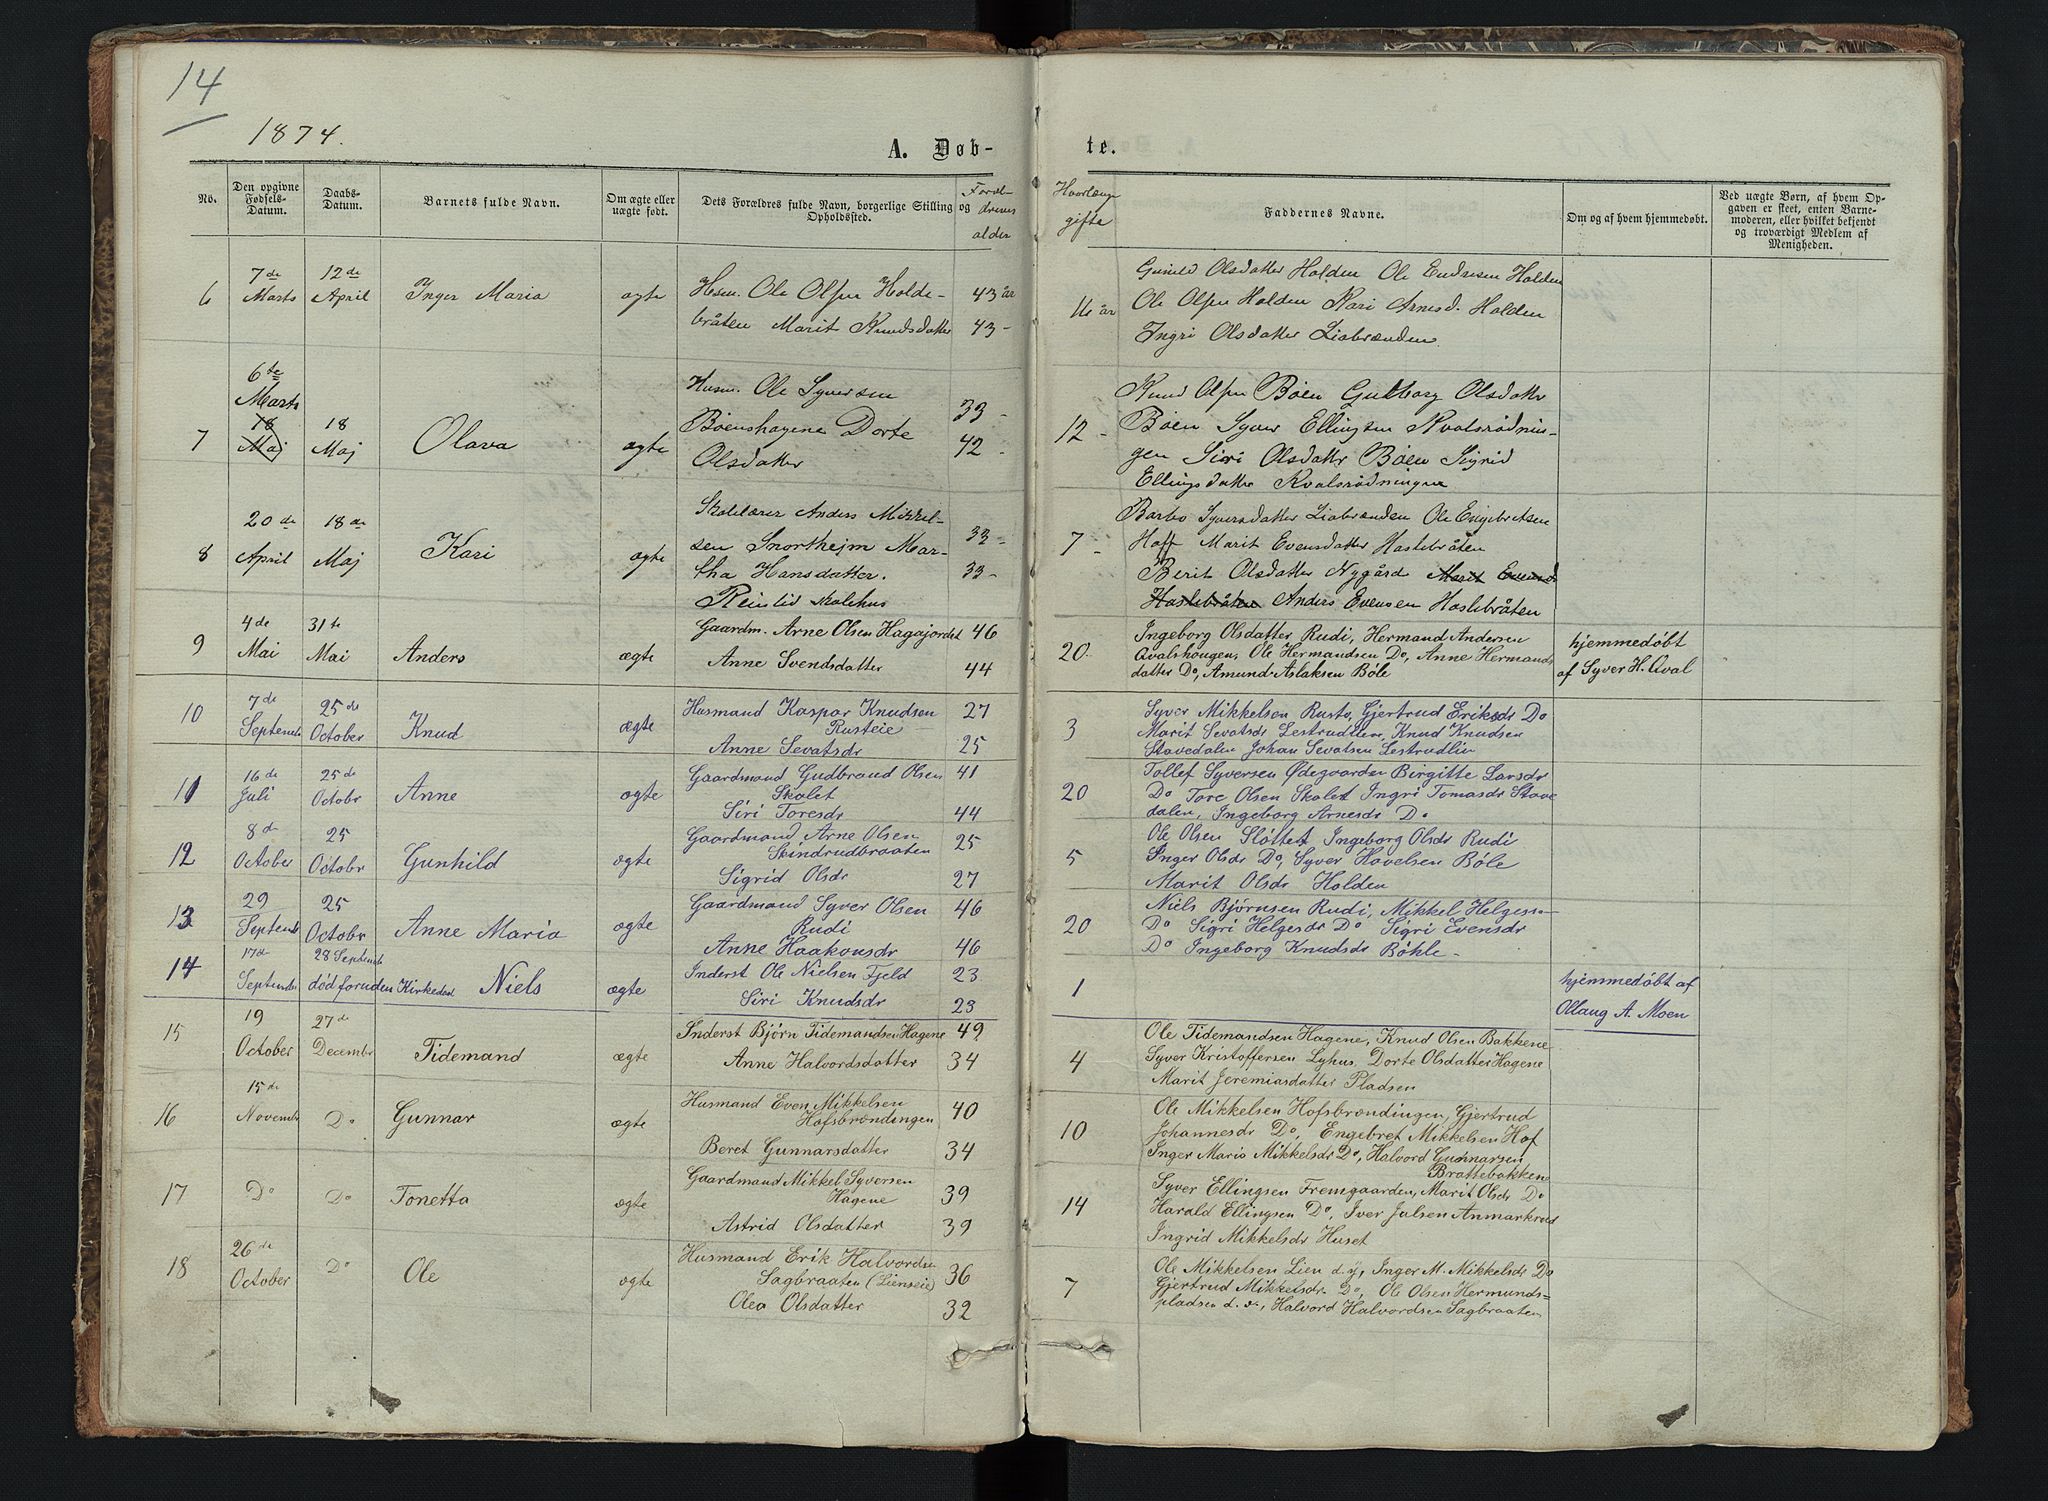 14
1874.
A. Døb-
te.
No.
Den opgivne Fødsels-Datum.
Daabs-Datum.
Barnets fulde Navn.
Om ægte eller uægte født.
Dets Forældres fulde Navn, borgerlige Stilling og Opholdssted.
Foræl-
drenes
alder
Hvorlænge
gifte
Faddernes Navne.
Om og af hvem hjemmedøbt.
Ved uægte Børn, af hvem Op-
gaven er skeet, enten Barne-
moderen, eller hvilket bekjendt
og troværdigt Medlem af
Menigheden.
6 7de Marts 12te April Inger Maria ægte
Husm. Ole Olsen Holde- 43 år
bråten Marit Knudsdatter 43 -
11 år
Gunild Olsdatter Holden Ole Endresen Holden
Ole Olsen Holden Kari Arnesd. Holden
Ingri Olsdatter Liabrænden
7 6te Marts 18 Maj 18 Maj Olava ægte
Husm. Ole Syversen 33 -
Bøenshagene Dorte 42 -
Olsdatter
12 -
Knud Olsen Bøen Gulborg Olsdatter
Bøen Syver Ellingsen Kvalsrødnin-
gen Siri Olsdatter Bøen Sigrid
Ellingsdatter Kvalsrødningen
8 20de April 18de Maj Kari ægte
Skolelærer Anders Mikkel-
sen Snortheim Mar- 33 -
tha Hansdatter. 33 -
Reinlid skolehus
7 -
Barbo Syversdatter Liabrænden Ole Engebretsen
Hoff Marit Evensdatter Haslebråten
Berit Olsdatter Nygård Marit Evensd
Haslebråten Anders Evensen Haslebråten
9 4de Mai 31te Mai Anders ægte
Gaardm. Arne Olsen Hagajordet 46
Anne Svendsdatter 44
20
Ingeborg Olsdatter Rudi, Hermand Andersen
Qvalshougen, Ole Hermandsen Do, Anne Hermands
datter Do, Amund Aslaksen Bøle
hjemmedøbt
af Syver H. Qval
10 7de Septembr 25de October Knud ægte
Husmand Kaspar Knudsen 27
Rusteie
Anne Sevatsdr 25
3
Syver Mikkelsen Rusto, Gjertrud Eriksdr Do
Marit Sevatsdr Lestrudlien, Knud Knudsen
Stavedalen Johan Sevatsen Lestrudlin
11 16de Juli 25de Octobr Anne ægte
Gaardmand Gudbrand Olsen 41
Skolet
Siri Toresdr 44
20
Tollef Syversen Ødegaarden Birgitte Larsdr
Do Tore Olsen Skolet Ingri Tomasdr Stave
dalen, Ingeborg Arnesdr Do
12 8de October 25 Octobr Gunhild ægte
Gaardmand Arne Olsen 25
Skindrudbraaten
Sigrid Olsdr 27
5
Ole Olsen Sløttet Ingeborg Olsdr Rudi
Inger Olsdr Do, Syver Havelsen Bøle
Marit Olsdr Holden
13 29 Septembr 25 October Anne Maria ægte
Gaardmand Syver Olsen 46
Rudi
Anne Haakonsdr 46
20
Niels Bjørnsen Rudi, Mikkel Helgesen
Do Sigri Helgesdr Do Sigri Evensdr
Do Ingeborg Knudsdr Bøhle -
14 17de September 28 Septembr død foruden Kirkedaab Niels ægte
Inderst Ole Nielsen Fjeld 23
Siri Knudsdr 23
1
hjemmedøbt af
Ollaug A. Moen
15 19 October 27de Decembr Tidemand ægte
Inderst Bjørn Tidemandsen Hagene 49
Anne Halvordsdatter 34
4
Ole Tidemandsen Hagene, Knud Olsen Bakkene
Syver Kristoffersen Lyhus, Dorte Olsdatter Hagene
Marit Jeremiasdatter Pladsen
16 15de Novembr Do Gunnar ægte
Husmand Even Mikkelsen
Hofsbrændingen 40
Beret Gunnarsdatter 34
10
Ole Mikkelsen Hofsbrændingen, Gjertrud
Johannesdr Do, Engebret Mikkelsen Hof
Inger Maria Mikkelsdr Do, Halvord Gunnarsen
Brattebakken
17 Do Do Tonetta ægte
Gaardmand Mikkel Syversen
Hagene 39
Astrid Olsdatter 39
14
Syver Ellingsen Fremgaarden, Marit Olsdr Do
Harald Ellingsen Do, Iver Julsen Anmarkrud
Ingrid Mikkelsdr Huset
18 26de October Do Ole ægte
Husmand Erik Halvordsen
Sagbraaten (Lienseie) 36
Olea Olsdatter 32
7
Ole Mikkelsen Lien d. y, Inger M. Mikkelsdr Do
Gjertrud Mikkelsdr Do, Ole Olsen Hermunds-
pladsen d. æ., Halvord Halvordsen Sagbraaten